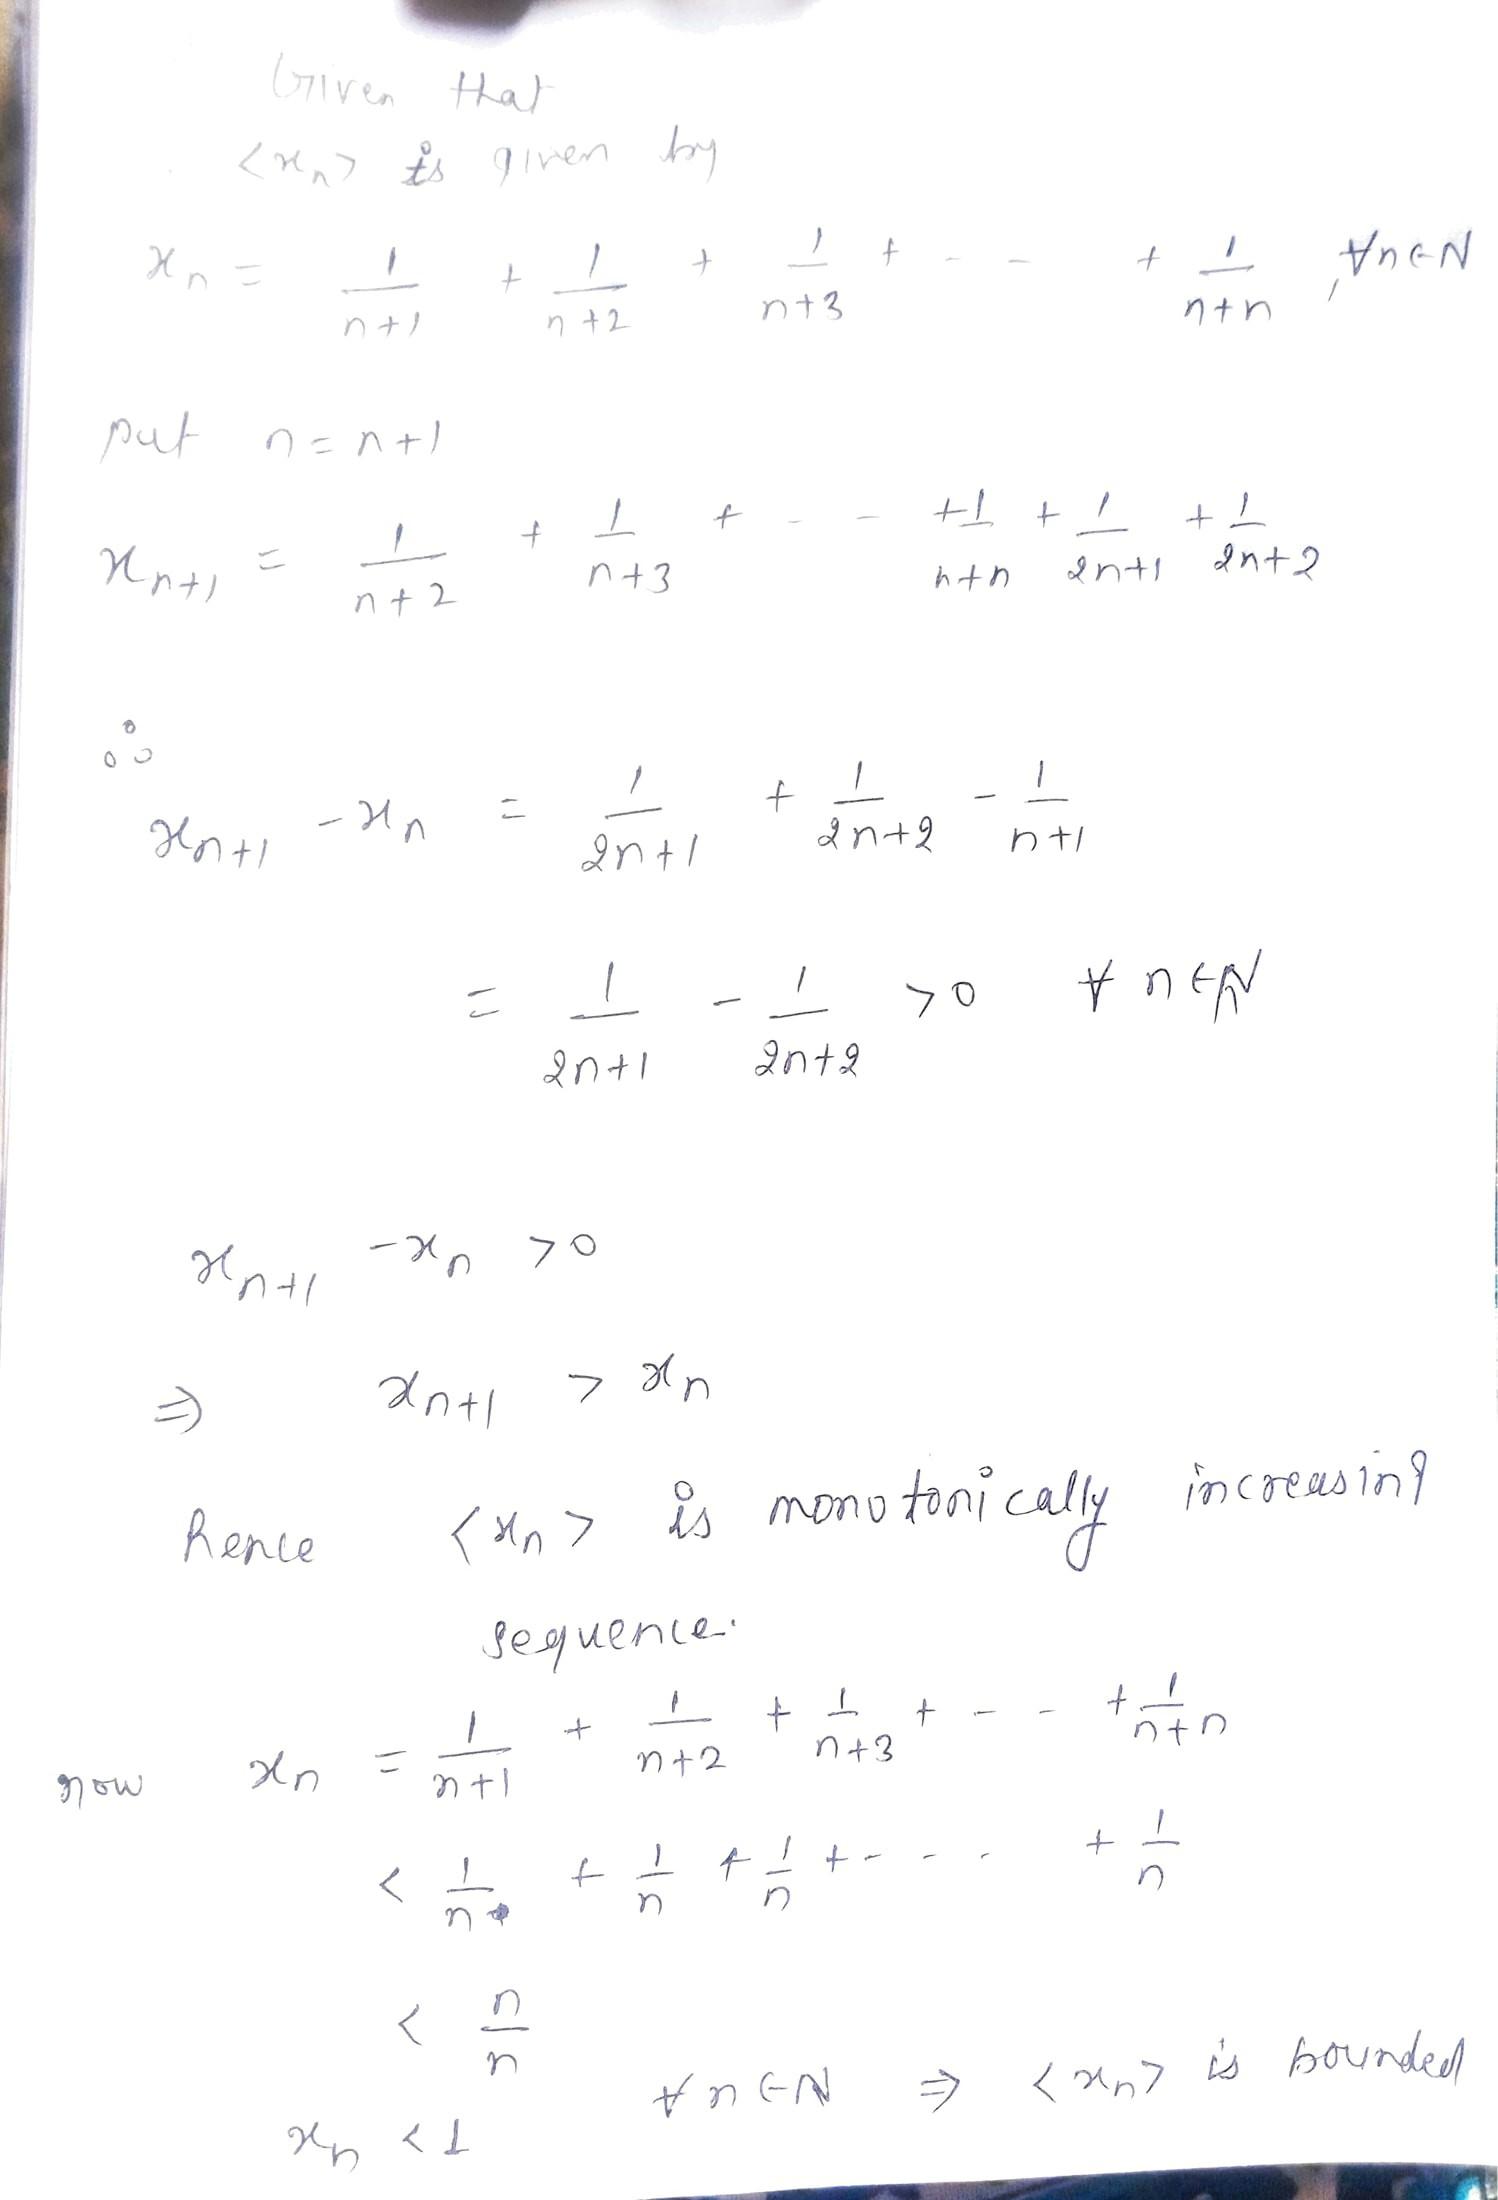 Given that
<xn> is given by
xn = 1/(n+1) + 1/(n+2) + 1/(n+3) + - - + 1/(n+n), ∀n∈N
put n=n+1
xn+1 = 1/(n+2) + 1/(n+3) + - - + 1/(n+n) + 1/(2n+1) + 1/(2n+2)
∴
xn+1 - xn = 1/(2n+1) + 1/(2n+2) - 1/(n+1)
= 1/(2n+1) - 1/(2n+2) >0 ∀ n∈N
xn+1 - xn >0
⇒ xn+1 > xn
hence <xn> is monotonically increasing
sequence.
now xn = 1/(n+1) + 1/(n+2) + 1/(n+3) + - - + 1/(n+n)
< 1/n + 1/n + 1/n + - - - + 1/n
< n/n
xn < 1 ∀ n∈N ⇒ <xn> is bounded